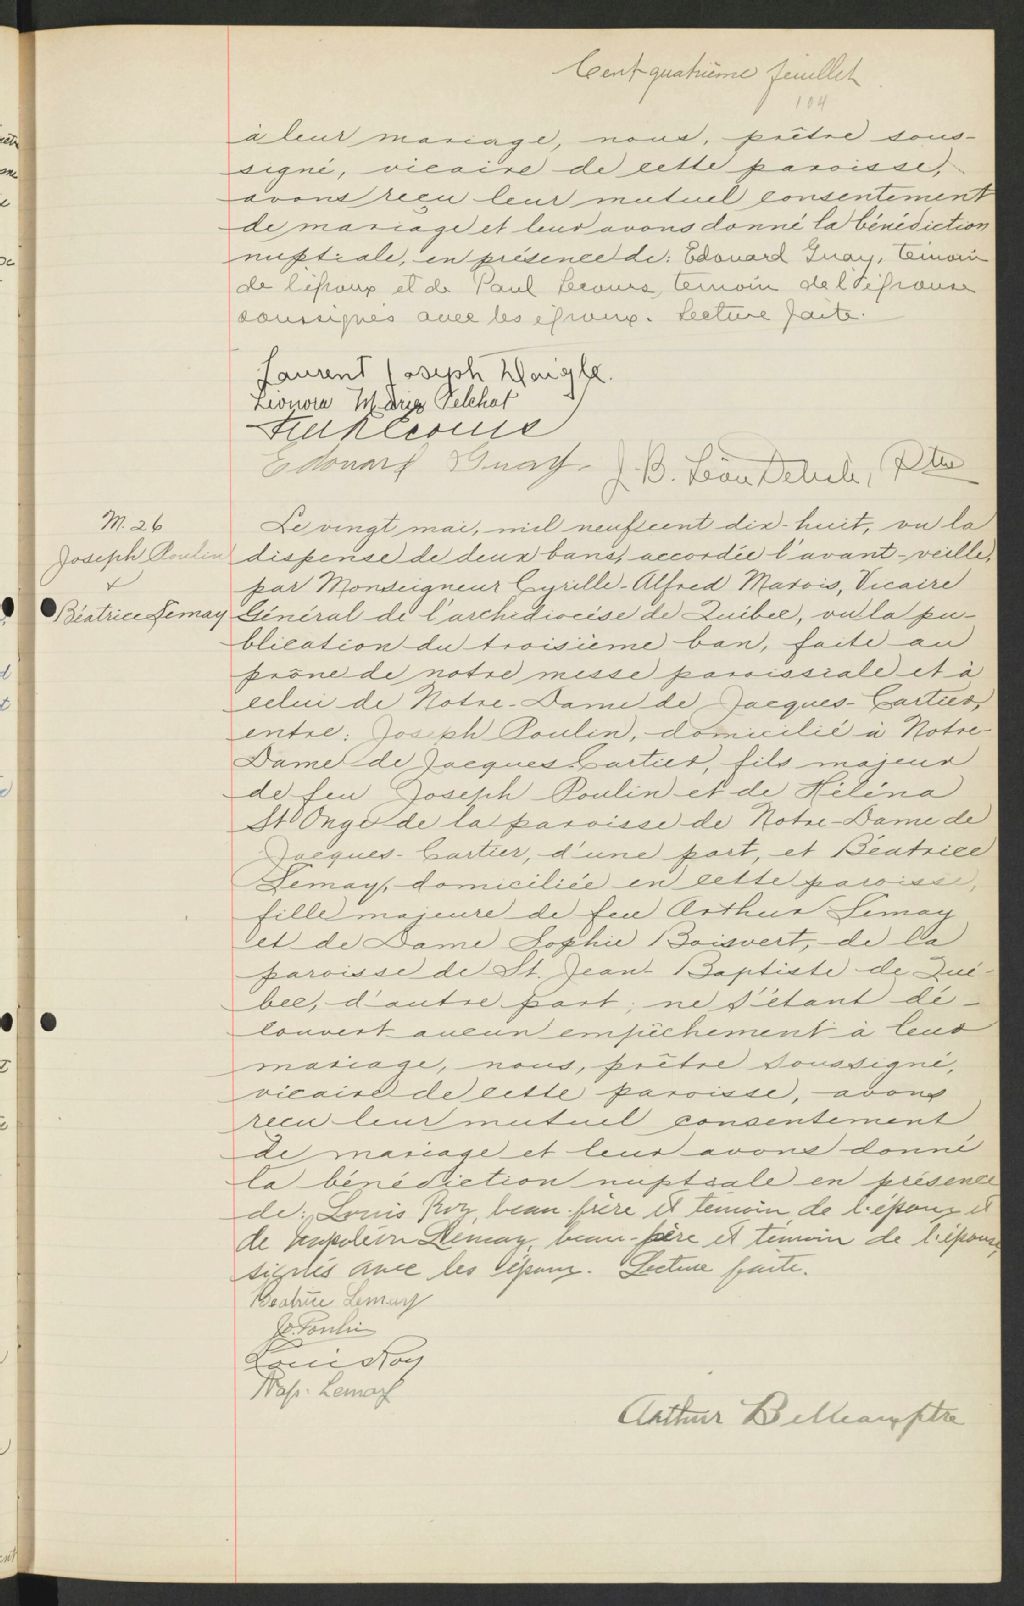 Cent quatrième feuillet
104
à leur mariage, nous, prêtre sous-
signé, vicaire de cette paroisse,
avons reçu leur mutuel consentement
de mariage et leur avons donné la bénédiction
nuptiale, en présence de: Edouard Guay, témoin
de l'époux et de Paul Lecours, temoin de l'épouse
soussignés avec les époux. Lecture faite.
Laurent Joseph Daigle.
Léonora Marie Pelchat
Paul Lecours
Edouard Guay
J. B. Léon Delisle, Ptre
M. 26
Joseph Poulin
&
Béatrice Lemay
Le vingt mai, mil neuf cent dix-huit, vu la
dispense de deux bans, accordée l'avant-veille,
par Monseigneur Cyrille-Alfred Marois, Vicaire
Général de l'archidiocèse de Québec, vu la pu-
blication du troisième ban, faite au
prône de notre messe paroissiale et à
celui de Notre-Dame de Jacques-Cartier,
entre: Joseph Poulin, domicilié à Notre-
Dame de Jacques-Cartier, fils majeur
de feu Joseph Poulin et de Héléna
St Onge de la paroisse de Notre-Dame de
Jacques-Cartier, d'une part, et Béatrice
Lemay, domiciliée en cette paroisse,
fille majeure de feu Arthur Lemay
et de Dame Sophie Boisvert, de la
paroisse de St. Jean-Baptiste de Qué-
bec, d'autre part; ne s'étant dé-
couvert aucun empêchement à leur
mariage, nous, prêtre soussigné,
vicaire de cette paroisse, avons
reçu leur mutuel consentement
de mariage et leur avons donné
la bénédiction nuptiale en présence
de: Louis Roy, beau-frère et témoin de l'époux et
de Napoléon Lemay, beau-père et témoin de l'épouse,
signés avec les époux. Lecture faite.
Béatrice Lemay
Jo. Poulin
Louis Roy
Nap. Lemay
Arthur ptre